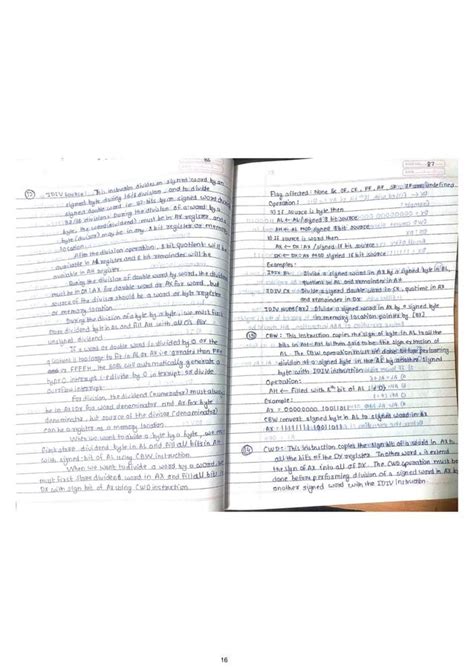 86
(12) IDIV Source: This instruction divides an signed word by an
signed byte during 16/8 division, and to divide
signed double word i.e. 32 bits by an signed word during
32/16 division. During the division of a word by a
byte, the word (dividend) must be in AX register, and a
byte (divisor) may be in any 8 bit register or memory
location.
After the division operation, 8 bit quotient will be
available in AL register and 8 bit remainder will be
available in AH register.
During the division of double word by word, the dividend
must be in DX:AX for double word or AX for word, but
source of the divisor should be a word or byte register
or memory location.
During the division of a byte by a byte, we must first
store dividend byte in AL and fill AH with all 0s for
unsigned dividend
If a word or double word is divided by 0 or the
quotient is too large to fit in AL or AX i.e. greater than FFH
or FFFFH, the 8086 will automatically generate a
type 0 interrupt i.e divide by 0 interrupt or divide
overflow interrupt
For division, the dividend (numerator) must always
be in AX or DX for word denominator and AX for byte
denominator, but source of the divisor (denominator)
can be a register or a memory location.
When we want to divide a byte by a byte, we must
first store dividend byte in AL and fill all bits in AH
with signed bit of AL using CBW instruction.
When we want to divide a word by a word, we
must first store dividend word in AX and fill all bits in
DX with sign bit of AX using CWD instruction
87
Flag affected: None & OF, CF, PF, AF, SF, ZF are undefined
Operation:
1) If source is byte then
AL ← AL / signed 8 bit source
AH ← AL MOD signed 8 bit source
2) If source is word then
AX ← DX:AX / signed 16 bit source
DX ← DX:AX MOD signed 16 bit source
Examples:
IDIV BL : Divide a signed word in AX by a signed byte in BL,
quotient in AL and remainder in AH
IDIV CX : Divide signed double word in DX, quotient in AX
and remainder in DX
IDIV [BX] : Divide a signed word in AX by signed
byte in memory location pointed by [BX]
(13) CBW: This instruction copies the sign of byte in AL to all the
bits in AH. AH is then said to be the sign extension of
AL. The CBW operation must be done before performing
division of a signed byte in the AL by another signed
byte with IDIV instruction
Operation:
AH ← Filled with 8th bit of AL
Example:
AX = 00000000 10011011
CBW convert signed byte in AL to signed word in AX
AX = 11111111 10011011
(14) CWD: This instruction copies the sign bit of a word in AX to
all the bits of the DX register. In other word, extend
the sign of AX into all of DX. The CWD operation must be
done before performing division of a signed word in AX by
another signed word with the IDIV instruction
16